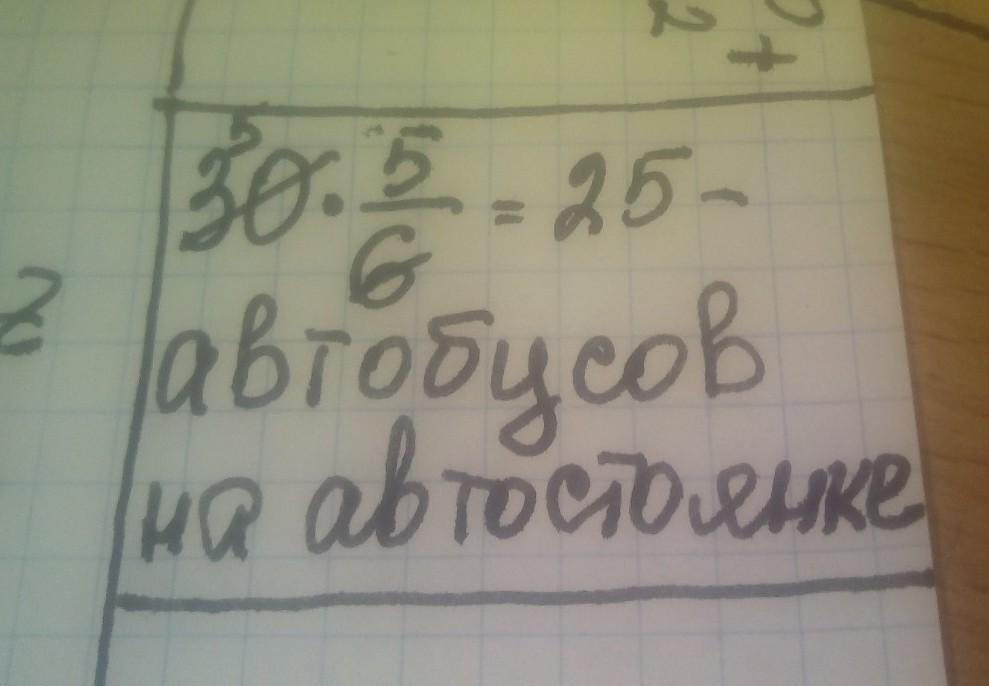 30 · 5/6 = 25 -
автобусов
на автостоянке